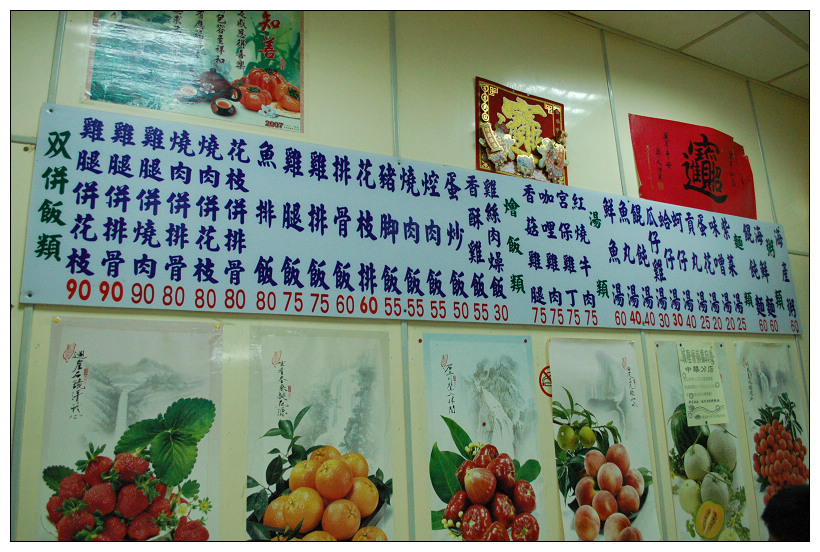 知善
2007
双併飯類
雞腿併花枝 90
雞腿併排骨 90
雞腿併燒肉 90
燒肉併排骨 80
燒肉併花枝 80
花枝併排骨 80
魚排飯 80
雞腿飯 75
雞排飯 75
排骨飯 60
花枝排 60
豬腳飯 55
燒肉飯 55
焢肉飯 55
蛋炒飯 50
香酥雞飯 55
雞絲肉燥飯 30
燴飯類
香菇雞腿 75
咖哩雞肉 75
宮保雞丁 75
紅燒牛肉 75
湯類
鮮魚湯 60
魚丸湯 40
餛飩湯 40
瓜仔雞湯 30
蛤仔湯 30
蚵仔湯 40
貢丸湯 25
蛋花湯 20
味噌湯 20
紫菜湯 25
麵類
餛飩麵 60
海鮮麵 60
粥類
海產粥 60